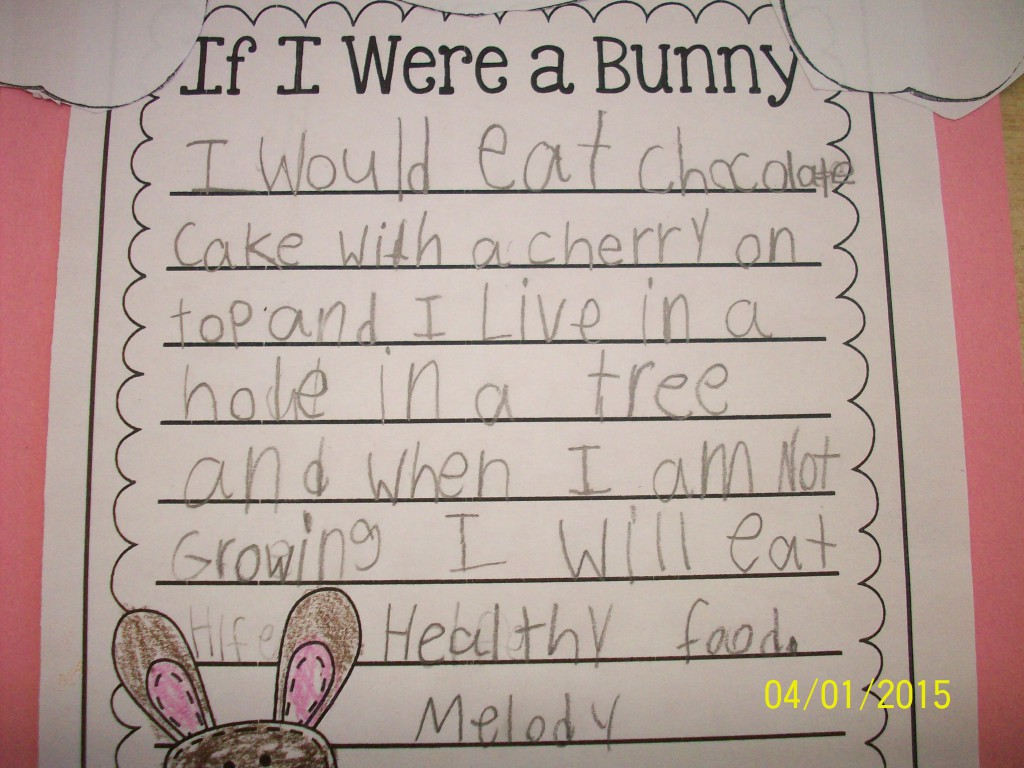 If I Were a Bunny
I Would eat chocolate
Cake with a cherry on
top and I Live in a
hole in a tree
and when I am Not
Growing I Will eat
Healthy food.
Melody
04/01/2015